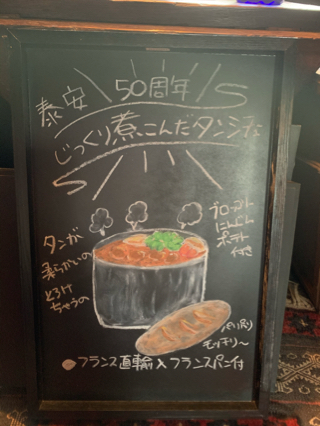 泰安 50周年
じっくり煮こんだタンシチュー
タンが
柔らかいの
とろけ
ちゃうの
ブロースト
にんじん
ポテト
付き
パリパリ
モッチリ〜
フランス直輸入フランスパン付